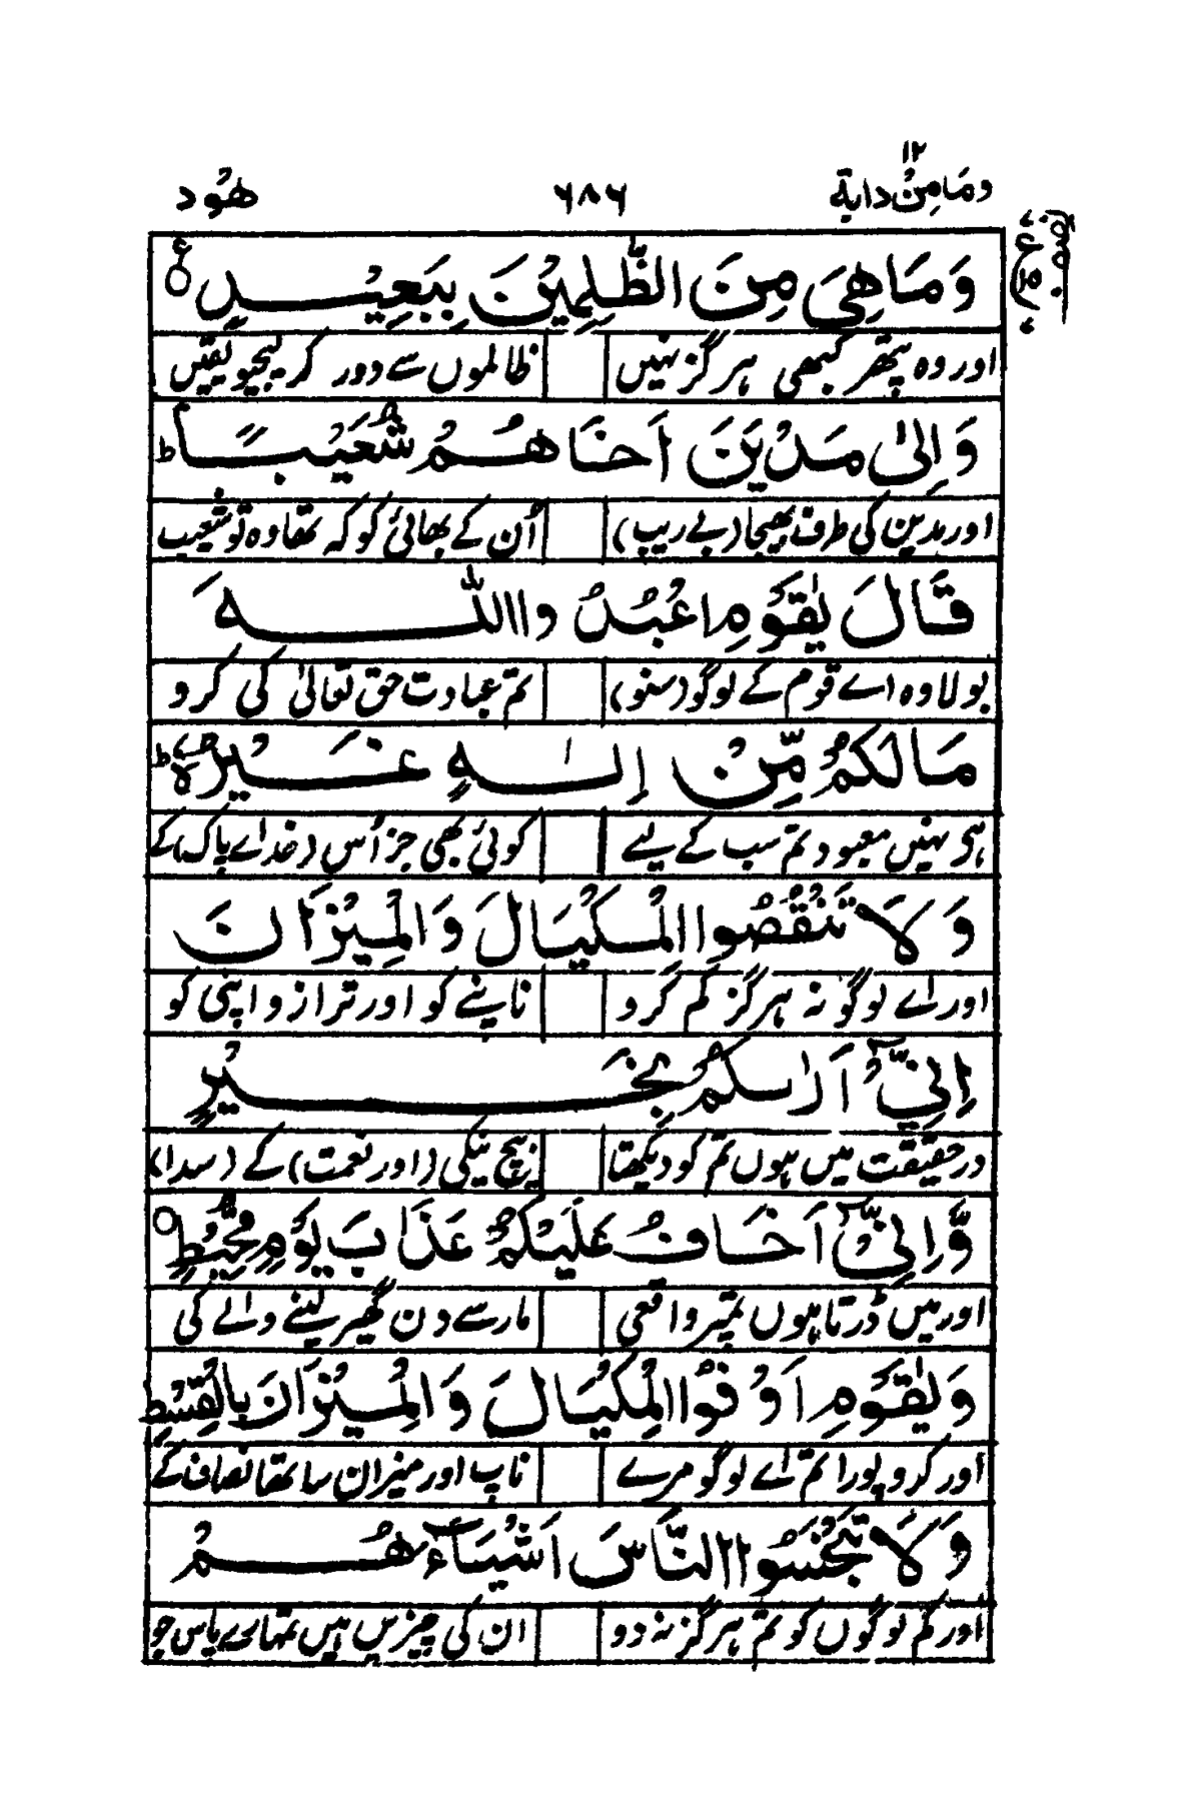 ١٢
ومَامِنْ دابة ٦٨٦ هُود
وَمَا هِيَ مِنَ الظّٰلِمِيْنَ بِبَعِيْدٍ ع
اور وہ پتھر کبھی ہرگز نہیں ظالموں سے دور کر لیجیو یقیں
وَاِلٰى مَدْيَنَ اَخَاهُمْ شُعَيْبًا ط
اور مدین کی طرف بھیجا (بے ریب) اُن کے بھائی کو کہ تھا وہ تو شعیب
قَالَ يٰقَوْمِ اعْبُدُوا اللهَ
بولا وہ اے قوم کے لوگو (سنو) تم عبادت حق تعالیٰ کی کرو
مَا لَكُمْ مِّنْ اِلٰهٍ غَيْرُهٗ ط
ہی نہیں معبود تم سب کے لیے کوئی بھی جز اُس (خداے پاک) کے
وَلَا تَنْقُصُوا الْمِكْيَالَ وَالْمِيْزَانَ
اور اے لوگو نہ ہرگز کم کرو ناپنے کو اور ترازو اپنی کو
اِنِّيْٓ اَرٰىكُمْ بِخَيْرٍ
درحقیقت میں ہوں تم کو دیکھتا بیچ نیکی (اور نعمت) کے (سدا)
وَّاِنِّيْٓ اَخَافُ عَلَيْكُمْ عَذَابَ يَوْمٍ مُّحِيْطٍ
اور میں ڈرتا ہوں تمپر واقعی مار سے دن گھیر لینے والے کی
وَيٰقَوْمِ اَوْفُوا الْمِكْيَالَ وَالْمِيْزَانَ بِالْقِسْطِ
اور کرو پورا تم اے لوگو مرے ناپ اور میزان ساتھ انصاف کے
وَلَا تَبْخَسُوا النَّاسَ اَشْيَآءَهُمْ
اور کم لوگوں کو تم ہرگز نہ دو ان کی چیزیں ہیں تمہارے پاس جو